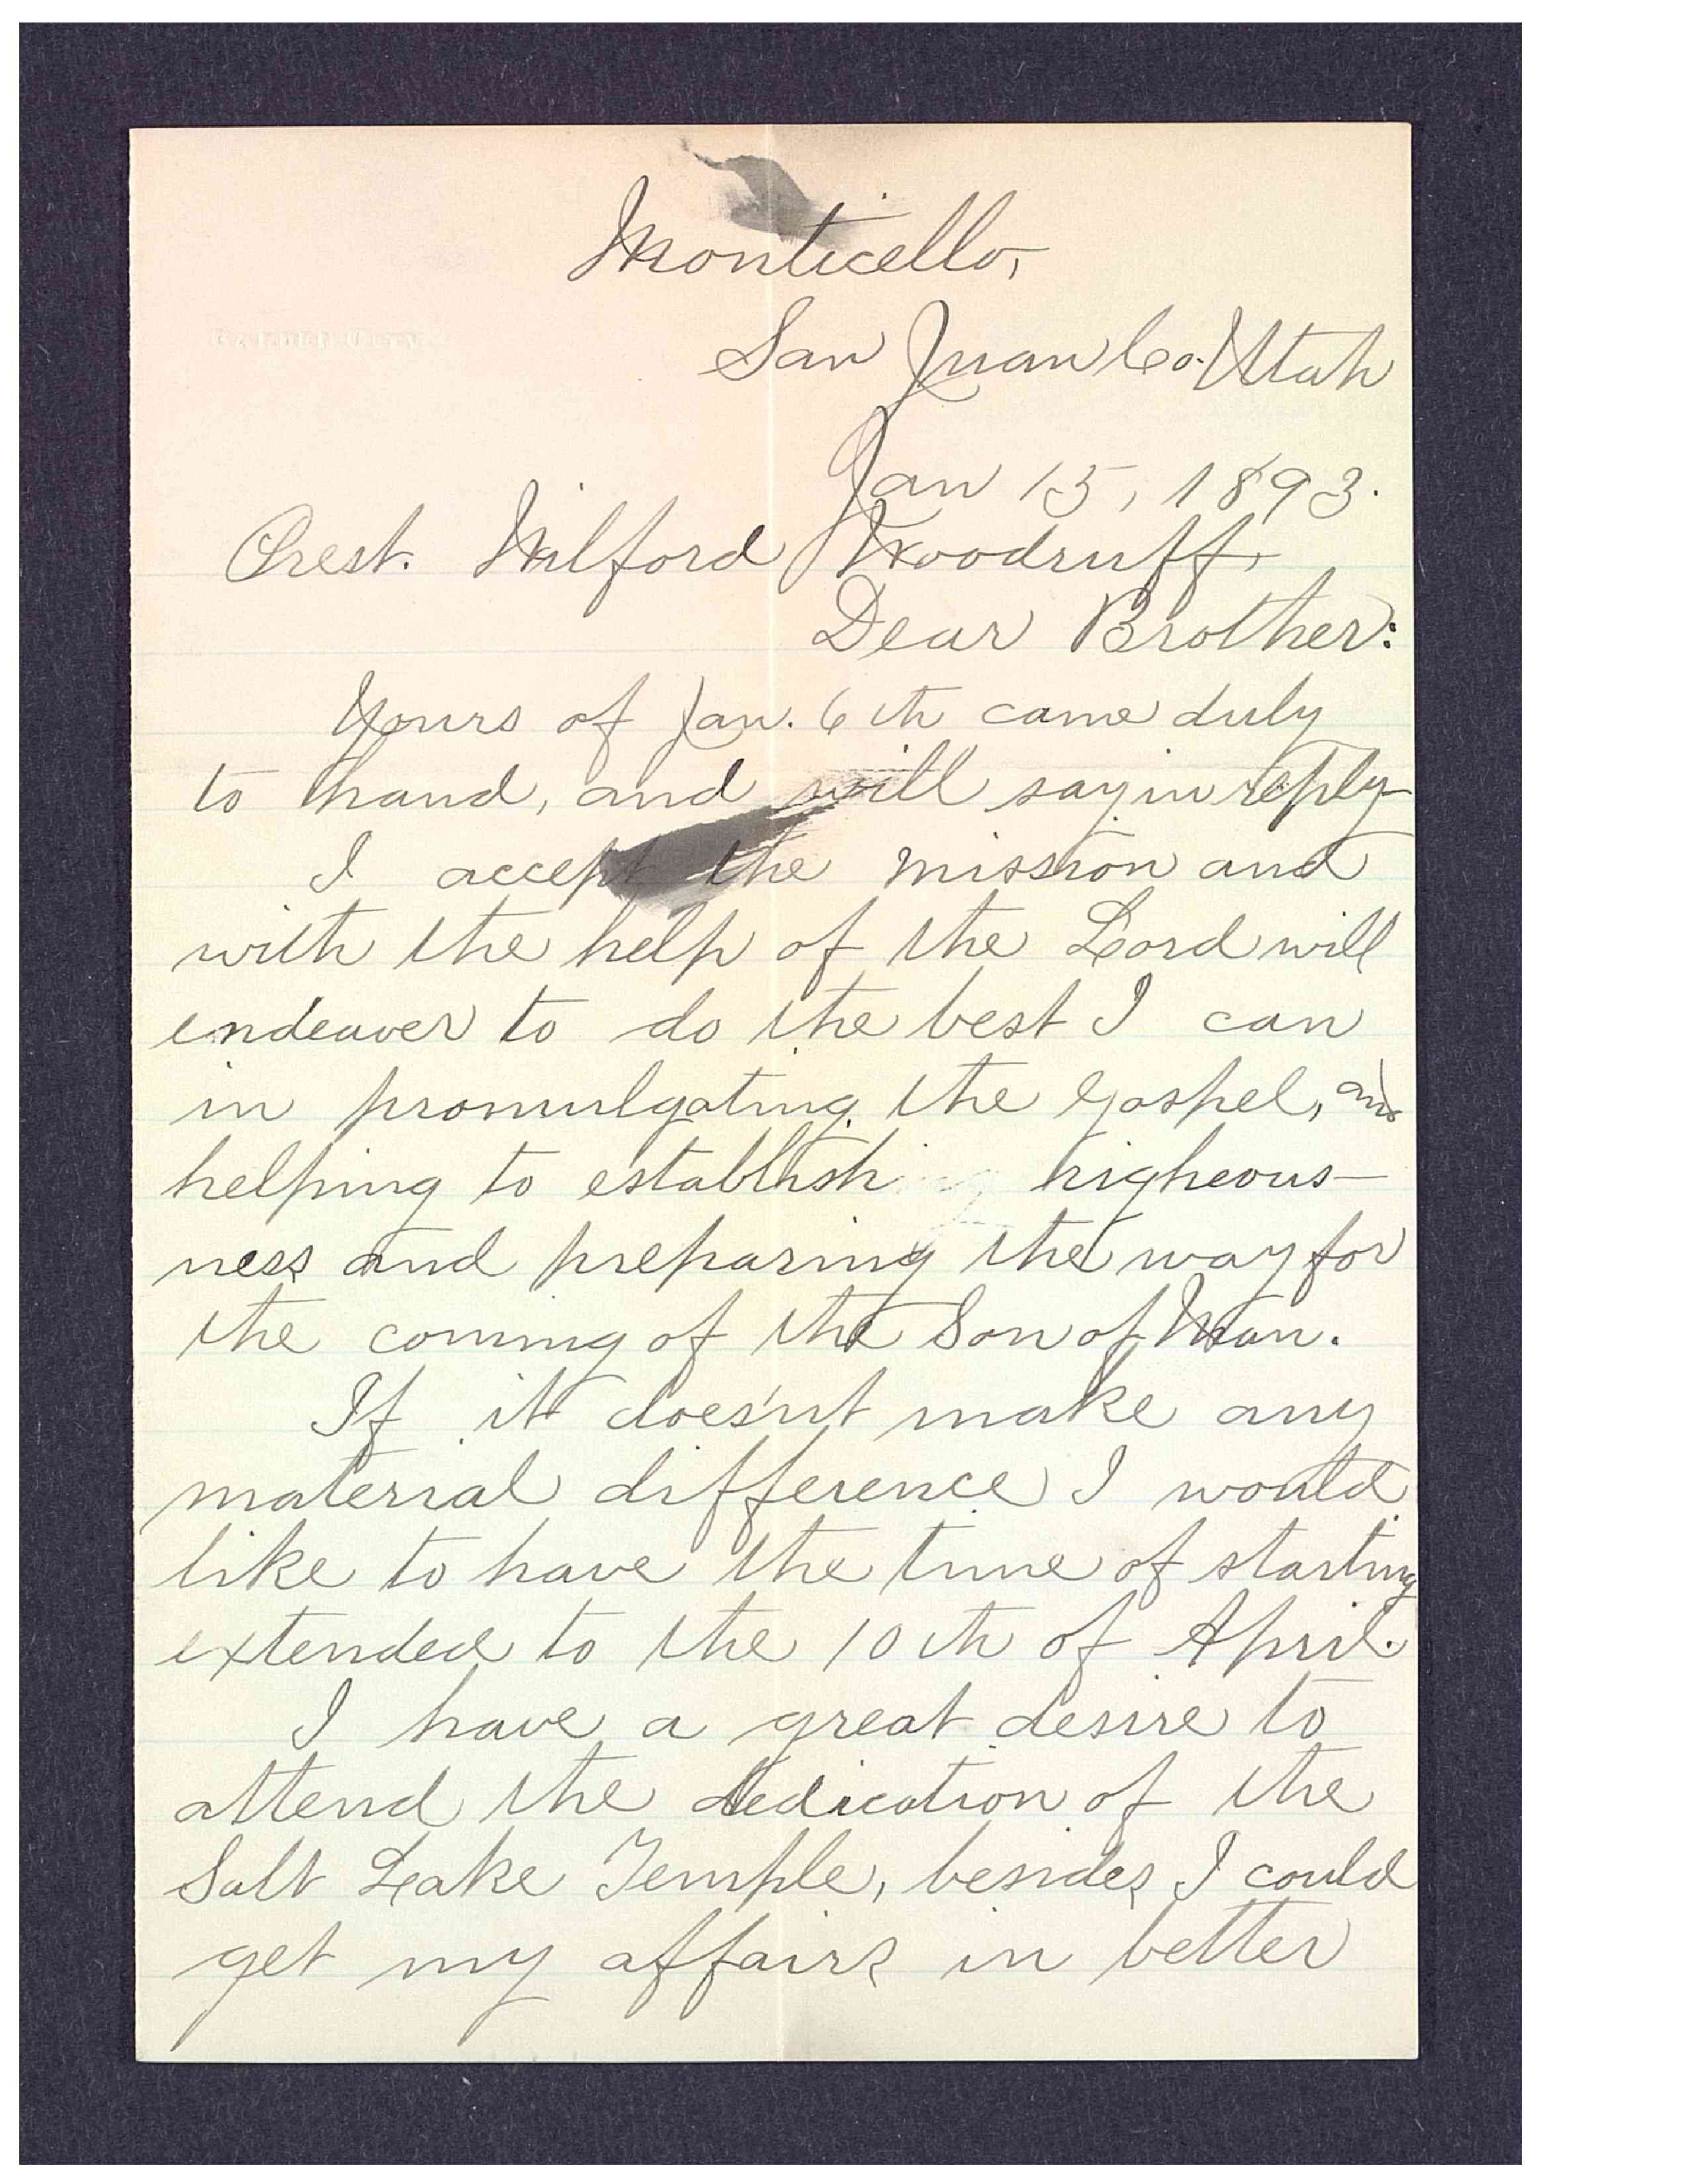 Monticello,
San Juan Co. Utah
Jan 15, 1893.
Prest. Wilford Woodruff,
Dear Brother:
Yours of Jan. 6th came duly
to hand, and will say in reply
I accept the mission and
with the help of the Lord will
endeaver to do the best I can
in promulgating the Gospel, and
helping to establish righeous-
ness and preparing the way for
the coming of the Son of Man.
If it does'nt make any
material difference I would
like to have the time of starting
extended to the 10th of April.
I have a great desire to
attend the dedication of the
Salt Lake Temple, besides I could
get my affairs in better